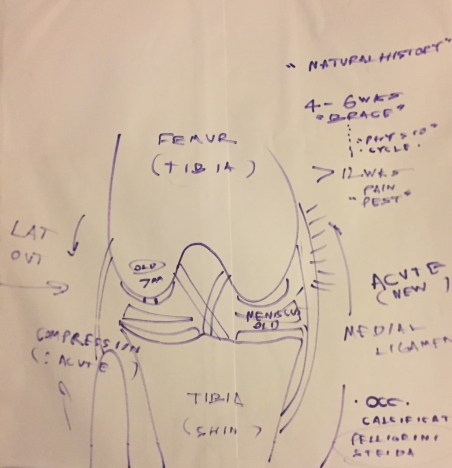 "NATURAL HISTORY"
4-6 WKS
"BRACE"
"PHYSIO"
CYCLE.
> 12 WKS
PAIN
FEMUR
(TIBIA)
LAT
OLD
7M
MENISCUS
OLD
ACUTE
(NEW)
MEDIAL
LIGAMEN
COMPRESSION
(: ACUTE)
TIBIA
(SHIN)
· OCC.
CALCIFICAT
PELLIGRINI
STEIDA